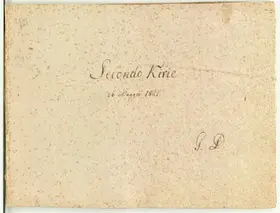 Secondo Kirie
26 Maggio 1821
G. P